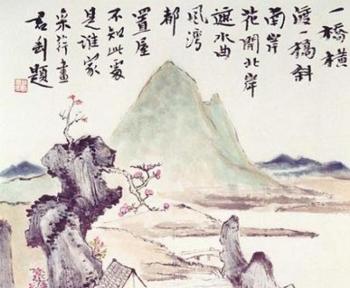 一橋橫
渡一橋斜
南岸
花開北岸
遮水曲
風灣
都
置屋
不知此處
是誰家
畫
題